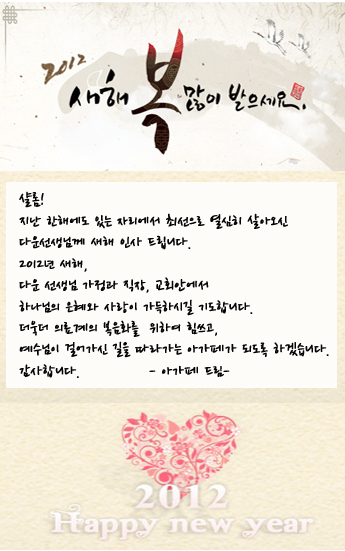 2012
새해 복 많이 받으세요.
샬롬!
지난 한해에도 있는 자리에서 최선으로 열심히 살아오신
다운선생님께 새해 인사 드립니다.
2012년 새해,
다운 선생님 가정과 직장, 교회안에서
하나님의 은혜와 사랑이 가득하시길 기도합니다.
더욱더 의료계의 복음화를 위하여 힘쓰고,
예수님이 걸어가신 길을 따라가는 아가페가 되도록 하겠습니다.
감사합니다. - 아가페 드림-
2012
Happy new year